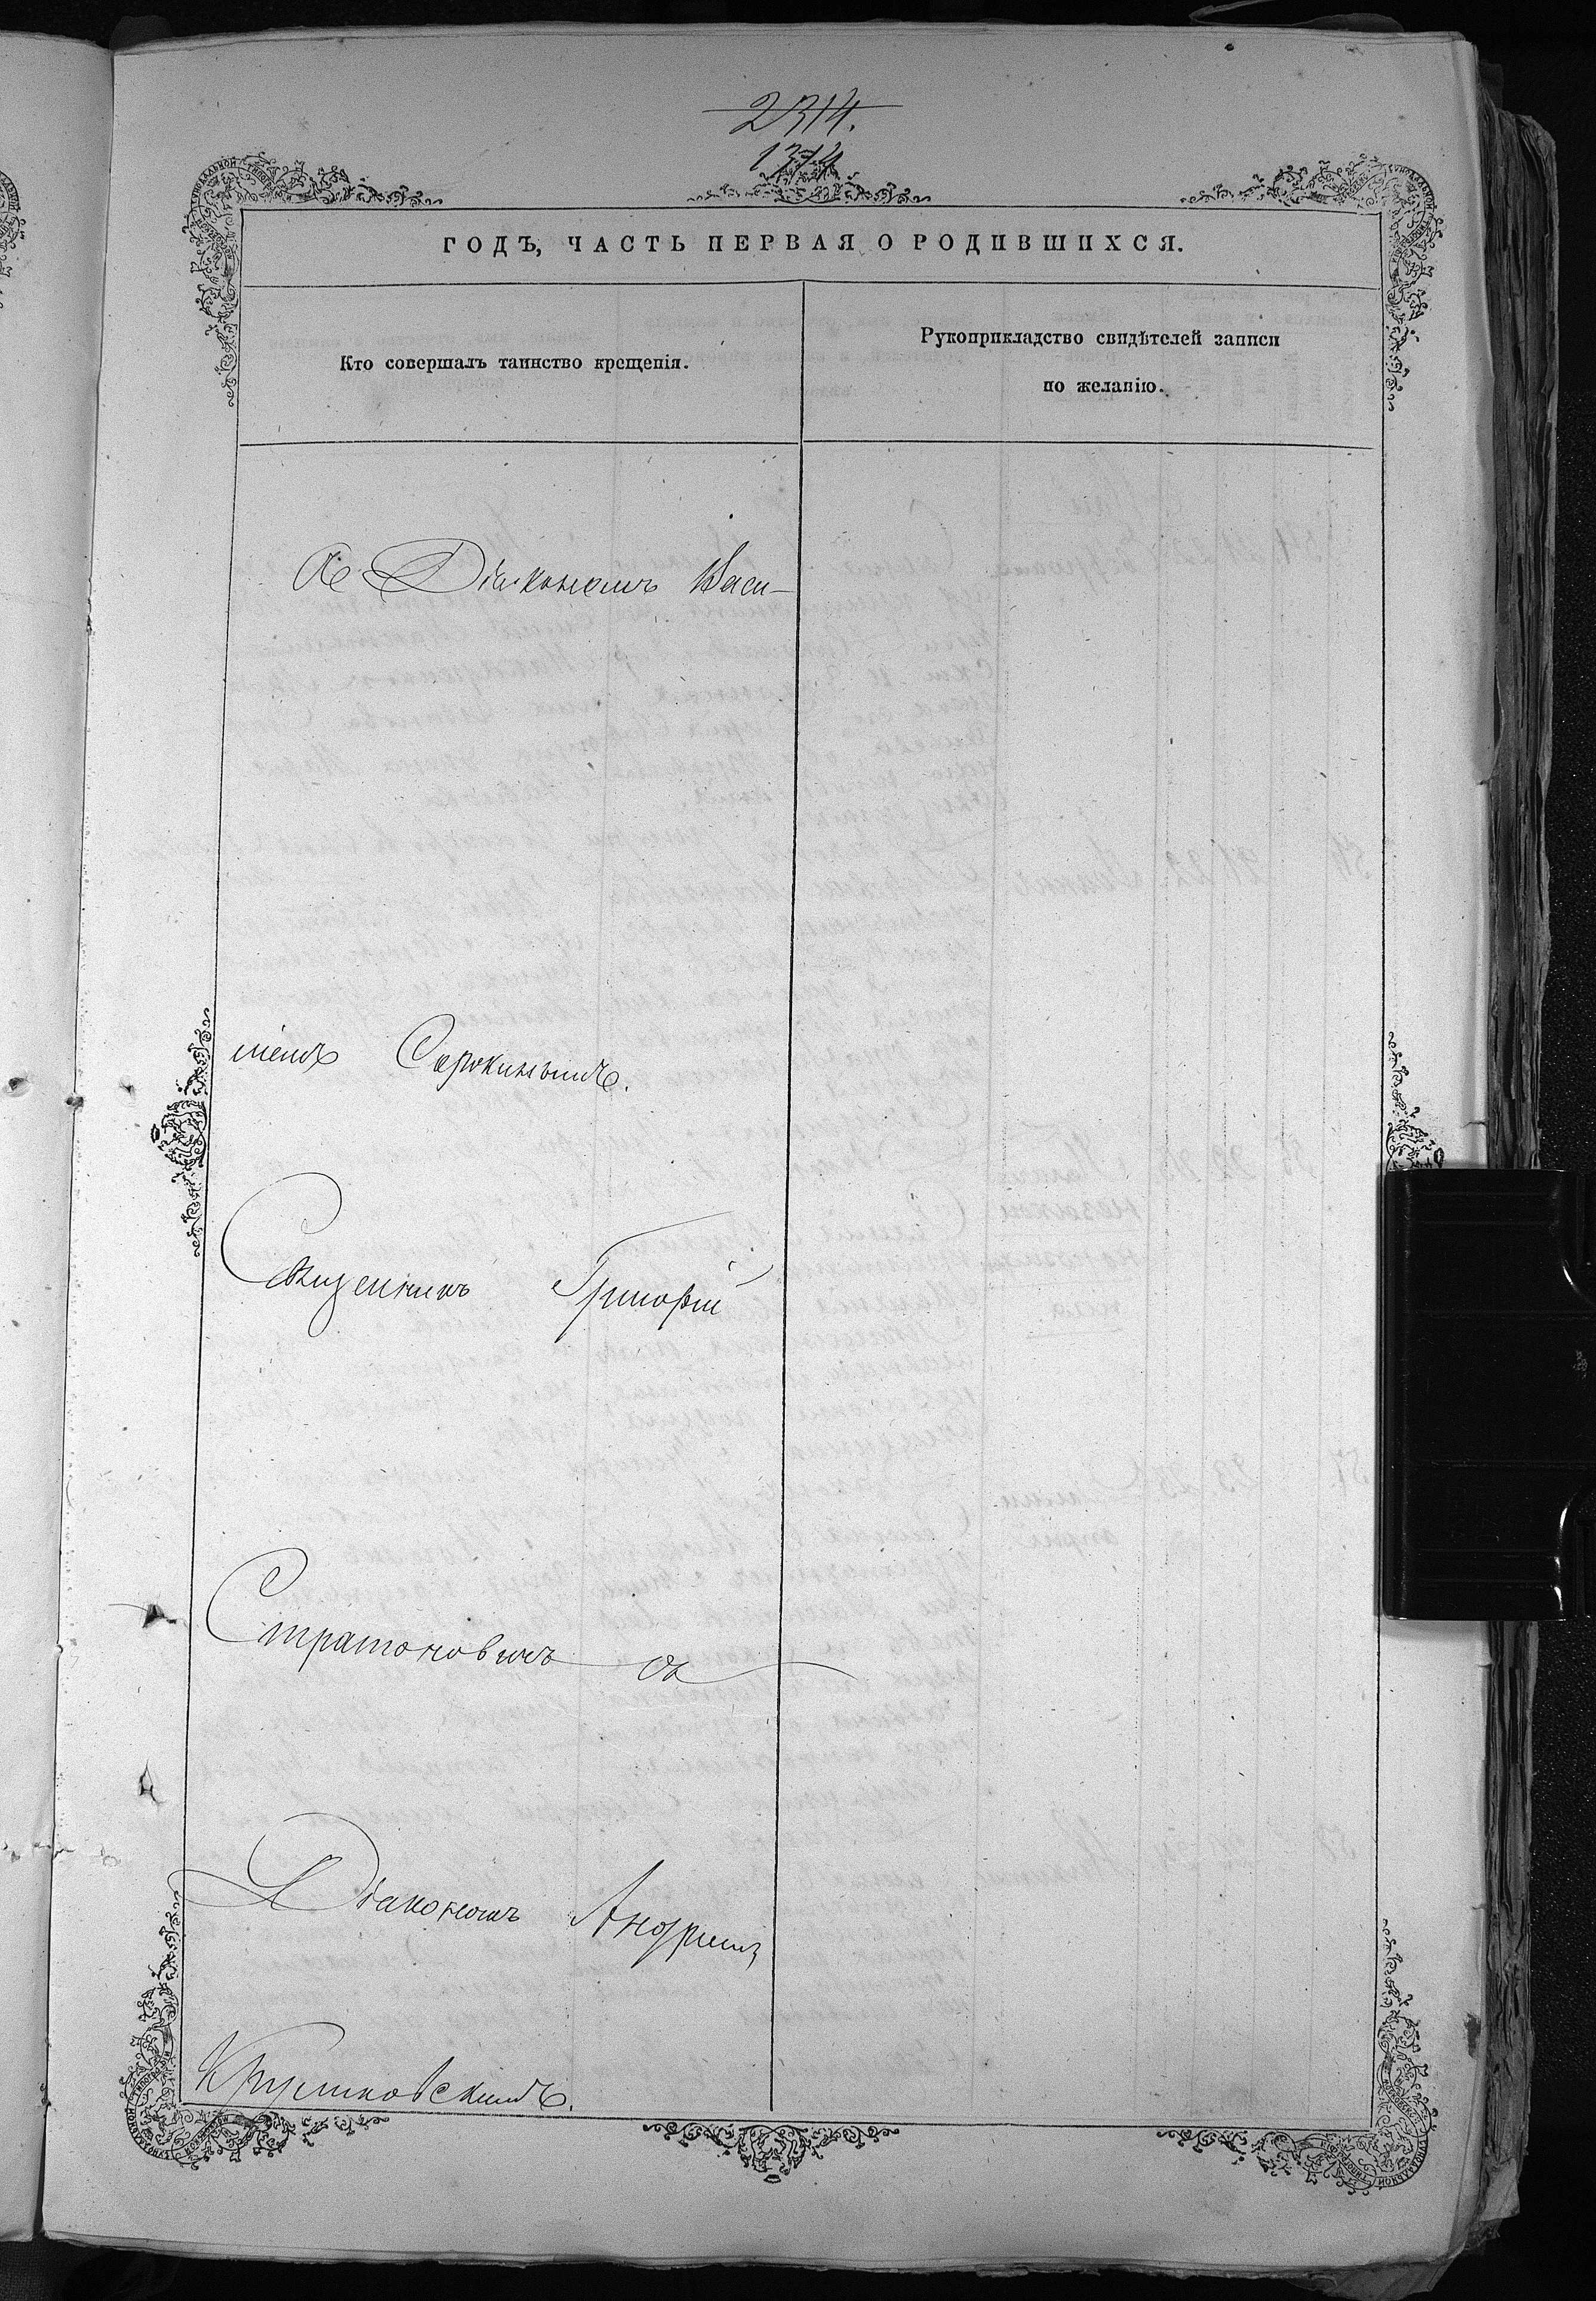 2314.
1374
ГОДЪ, ЧАСТЬ ПЕРВАЯ О РОДИВШИХСЯ.
Кто совершалъ таинство крещенія.
Рукоприкладство свидѣтелей записи
по желанію.
Діакономъ Васи-
ліемъ Сорокинымъ.
Священникъ Григорій
Стратоновичъ съ
Діакономъ Андреемъ